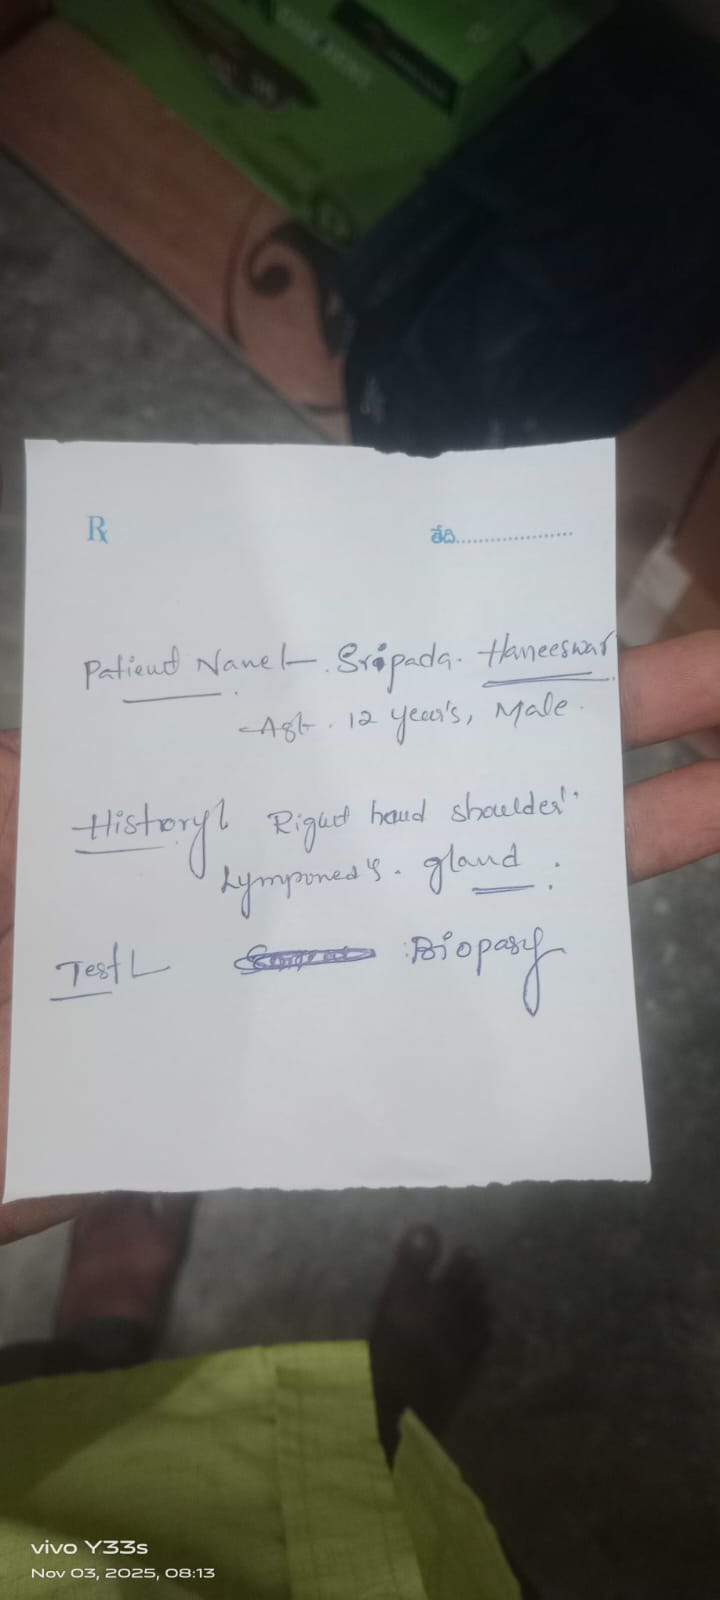 Rx
తేది....................
Patient Name:- Sripada. Haneeswar
Age. 12 year's, Male.
History: Right hand shoulder
Lymponed's. gland.
Test: Biopasy
vivo Y33s
Nov 03, 2025, 08:13